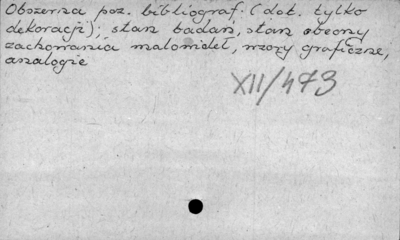 Obszerna poz. bibliograf. (dot. tylko
dekoracji); stan badań, stan obecny
zachowania malowideł, wzory graficzne,
analogie
XII/473